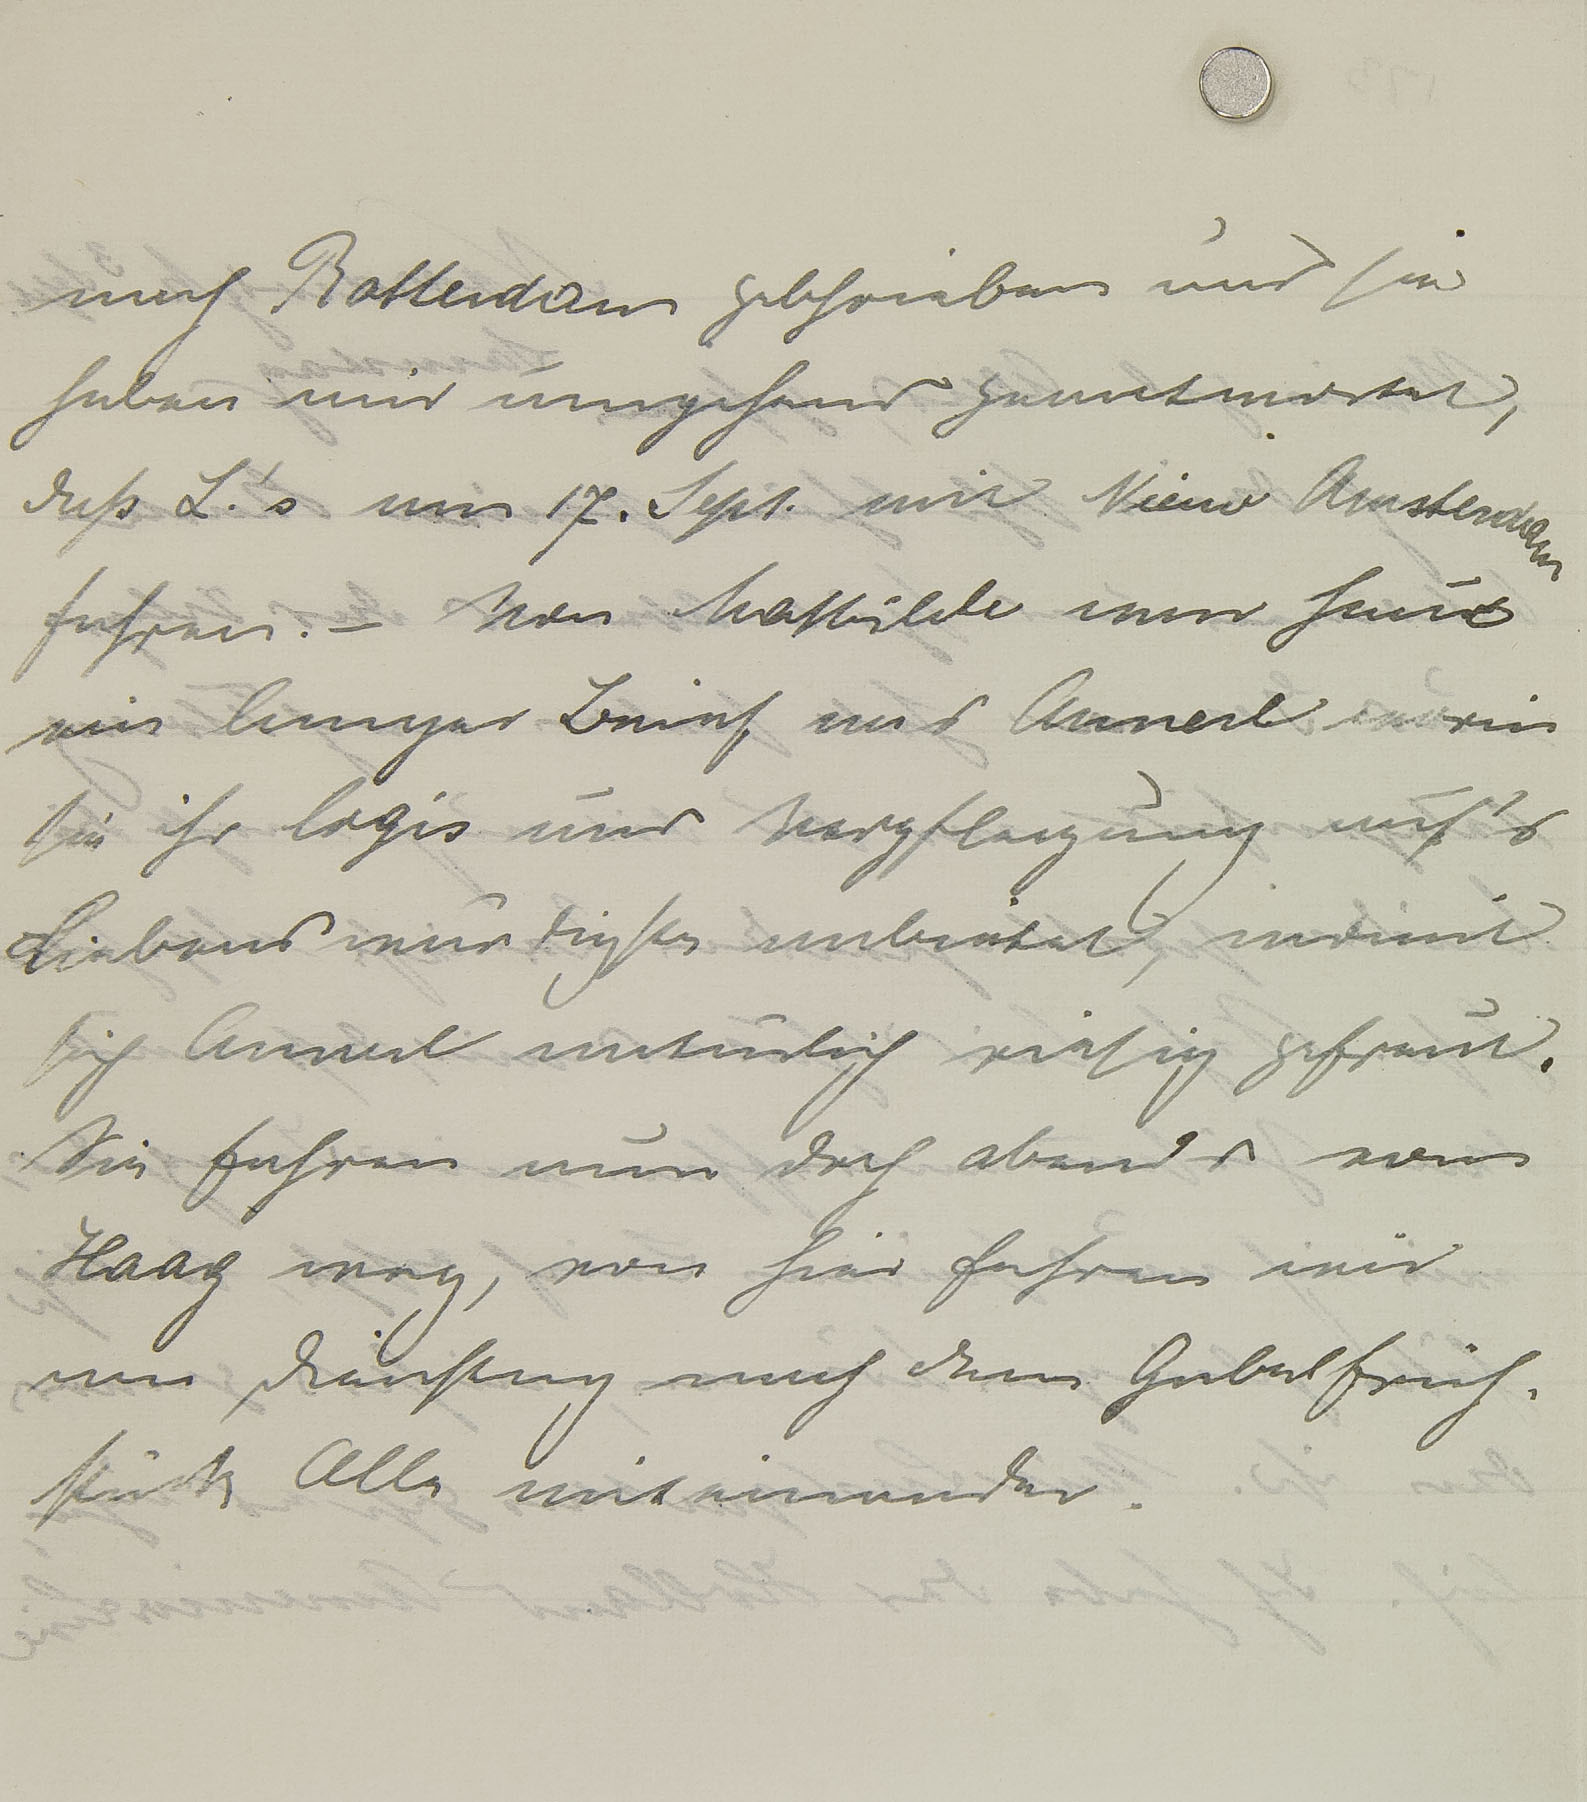 nach Rotterdam geschrieben und sie
haben mir umgehend geantwortet,
daß L.'s am 17. Sept. mit Nieuw Amsterdam
fahren. – Von Mathilde war heute
ein langer Brief an Annerl worin
sie ihr Logis und Verpflegung auf's
Liebenswürdigste anbietet, womit
sich Annerl natürlich riesig gefreut.
Sie fahren nun doch abends vom
Haag weg, von hier fahren wir
am Dienstag nach dem Gabelfrüh-
stück Alle miteinander.